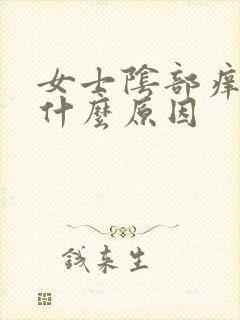 女士陰部痒
什麼原因
钱来生